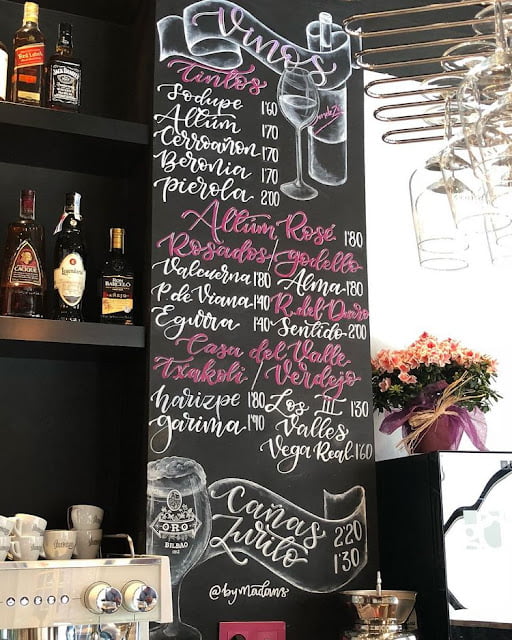 Vinos
Tintos
Sodupe 1'60
Altúm 1'70
Cerroañon 1'70
Beronia 1'70
Pierola 2'00
Altúm Rosé 1'80
Rosados/godello
Valcuerna 1'80 Alma 1'80
P. de Viana 1'40 R. del Duero
Egurra 1'40 Sentido 2'00
Casa del Valle
Txakoli / Verdejo
harizpe 1'80 Los III 1'30
garima 1'90 Valles
Vega Real 1'60
ORO
BILBAO
Cañas 2'20
Zurito 1'30
@bymadans
Red Label
JACK DANIEL'S
CACIQUE
BARCELO
AÑEJO